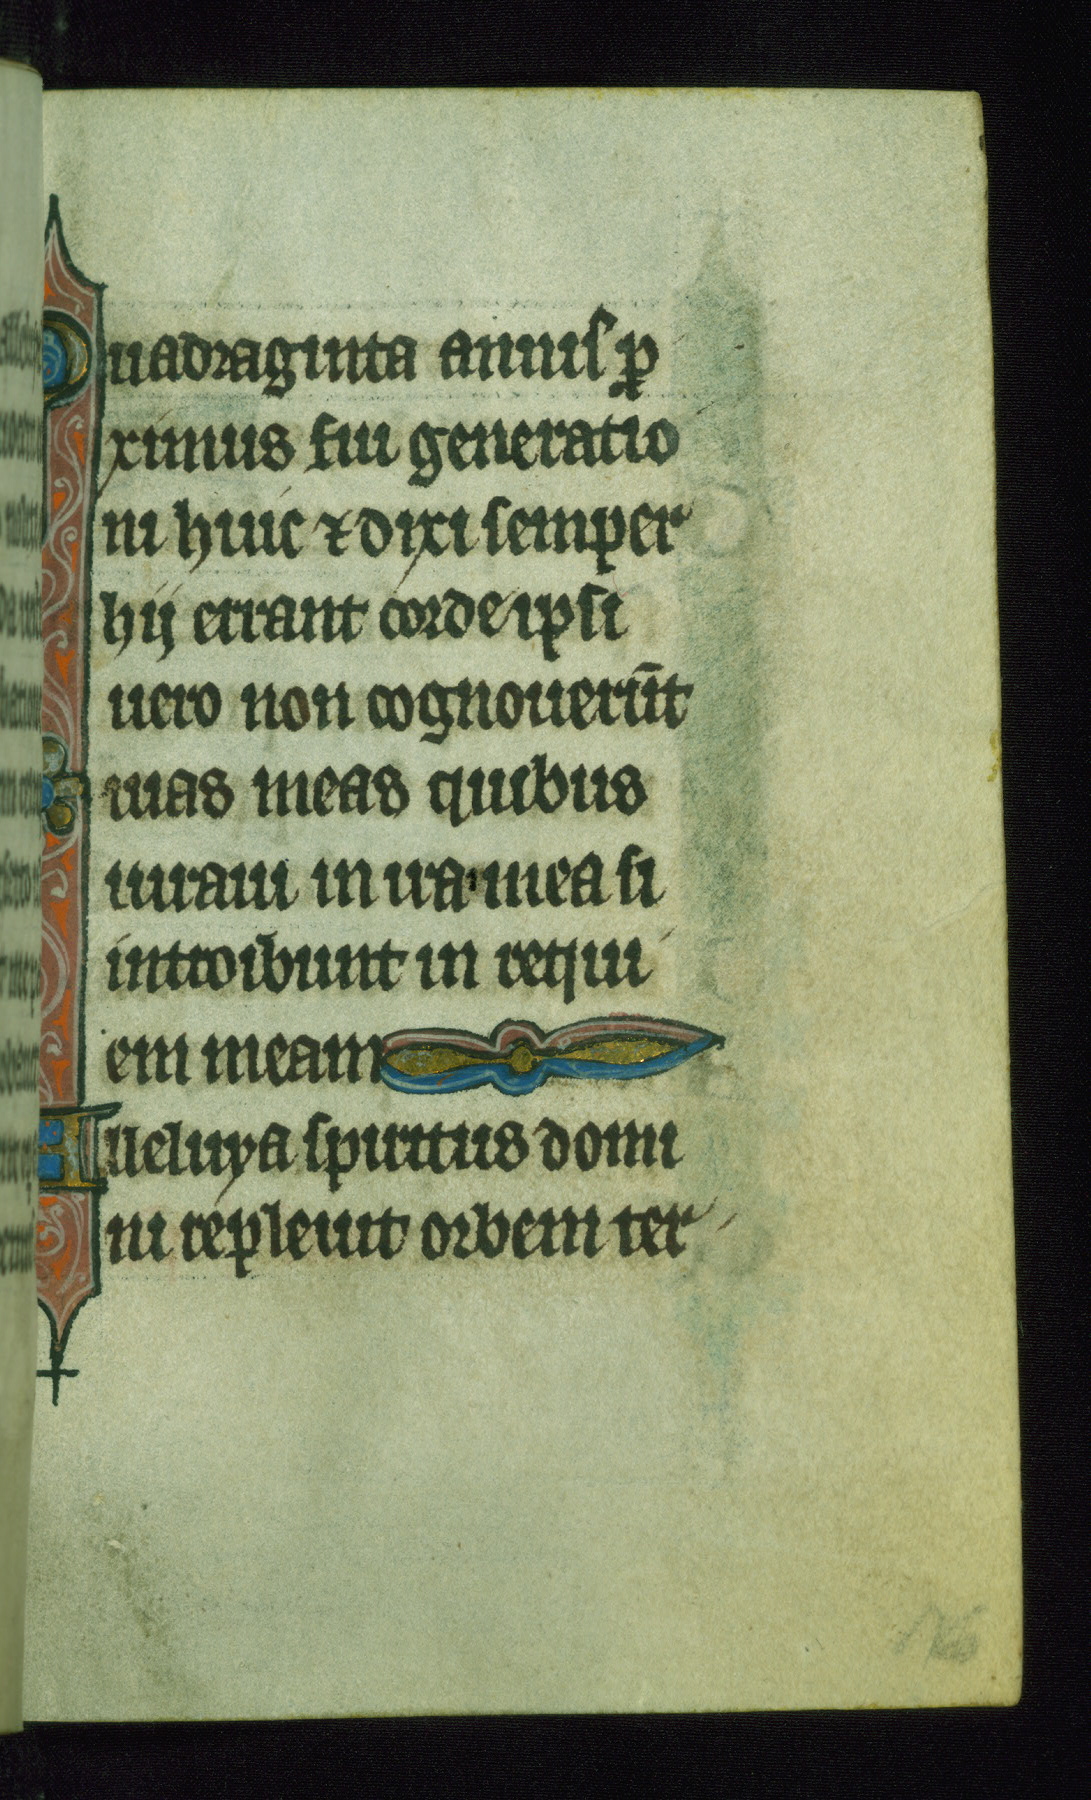 Quadraginta annis ꝓ
ximus fui generatio
ni huic ⁊ dixi semper
hij errant corde ipsi
uero non cognouerūt
uias meas quibus
iuraui in ira mea si
introibunt in requi
em meam
Alleluya spiritus domi
ni repleuit orbem ter